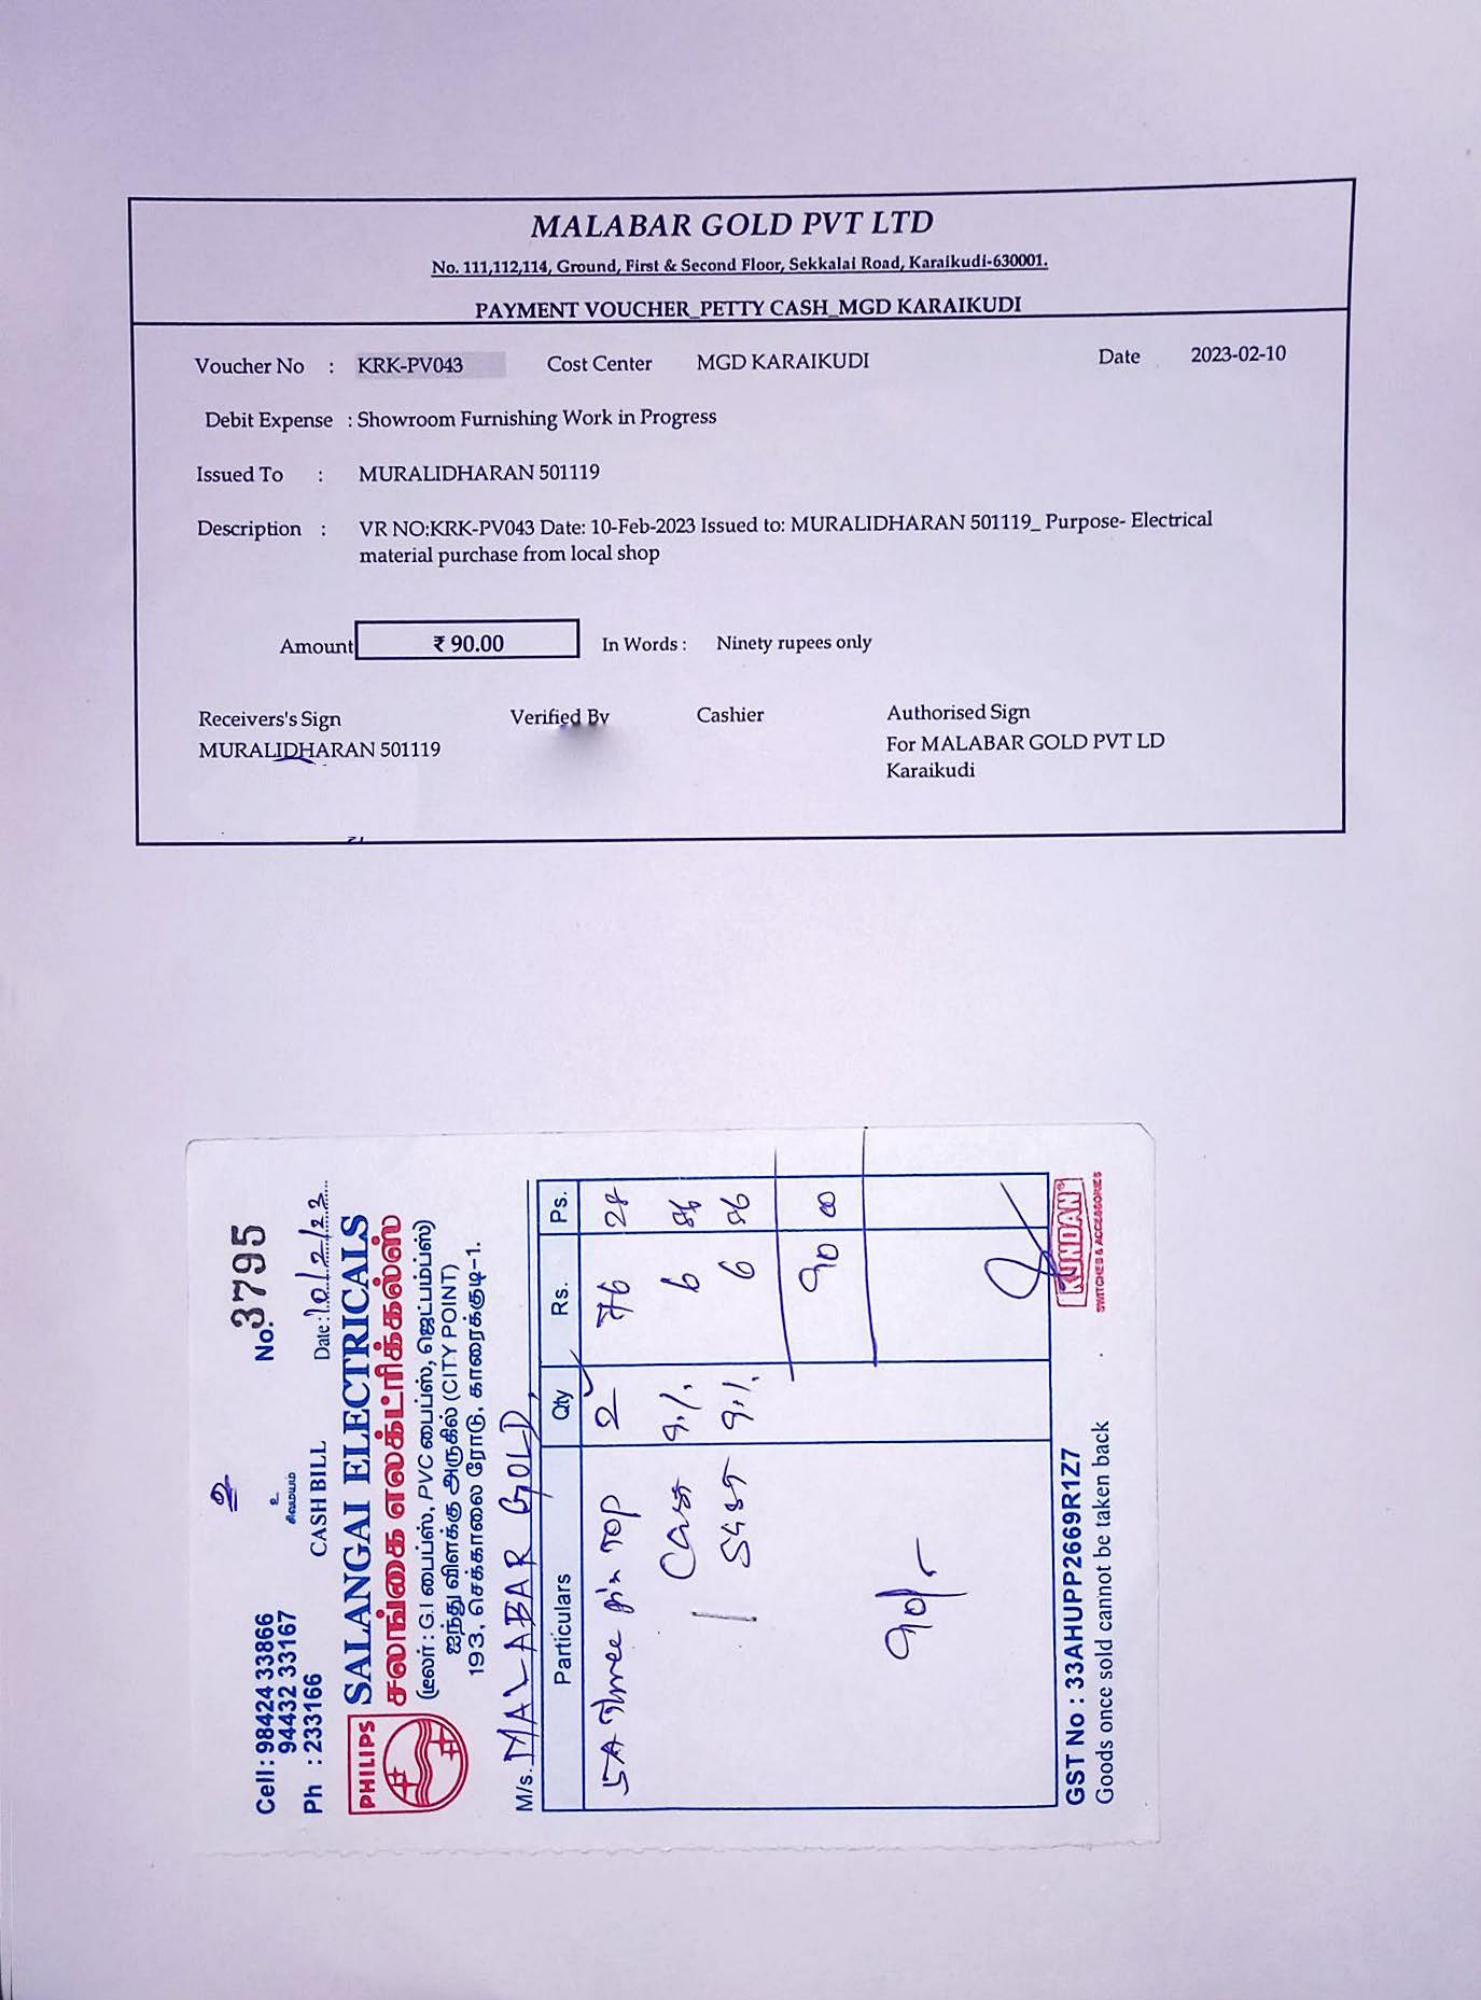 MALABAR GOLD PVT LTD
No. 111,112,114, Ground, First & Second Floor, Sekkalai Road, Karaikudi-630001.
PAYMENT VOUCHER_PETTY CASH_MGD KARAIKUDI
Voucher No : KRK-PV043 Cost Center MGD KARAIKUDI Date 2023-02-10
Debit Expense : Showroom Furnishing Work in Progress
Issued To : MURALIDHARAN 501119
Description : VR NO:KRK-PV043 Date: 10-Feb-2023 Issued to: MURALIDHARAN 501119_ Purpose- Electrical
material purchase from local shop
Amount ₹ 90.00 In Words : Ninety rupees only
Receivers's Sign Verified By Cashier Authorised Sign
MURALIDHARAN 501119 For MALABAR GOLD PVT LD
Karaikudi
உ
Cell : 98424 33866 உ No. 3795
94432 33167 சிவமயம்
Ph : 233166 CASH BILL Date : 10/2/23
PHILIPS SALANGAI ELECTRICALS
சலங்கை எலக்ட்ரிக்கல்ஸ்
(டீலர் : G.I பைப்ஸ், PVC பைப்ஸ், ஜெட்பம்ப்ஸ்)
ஐந்து விளக்கு அருகில் (CITY POINT)
193, செக்காலை ரோடு, காரைக்குடி-1.
M/s. MALABAR GOLD,
Particulars Qty Rs. Ps.
5A Three pin TOP 2 76 28
CGST 9.1. 6 86
SGST 9.1. 6 86
90 00
90/-
GST No : 33AHUPP2669R1Z7 KUNDAN
Goods once sold cannot be taken back SWITCHES & ACCESSORIES